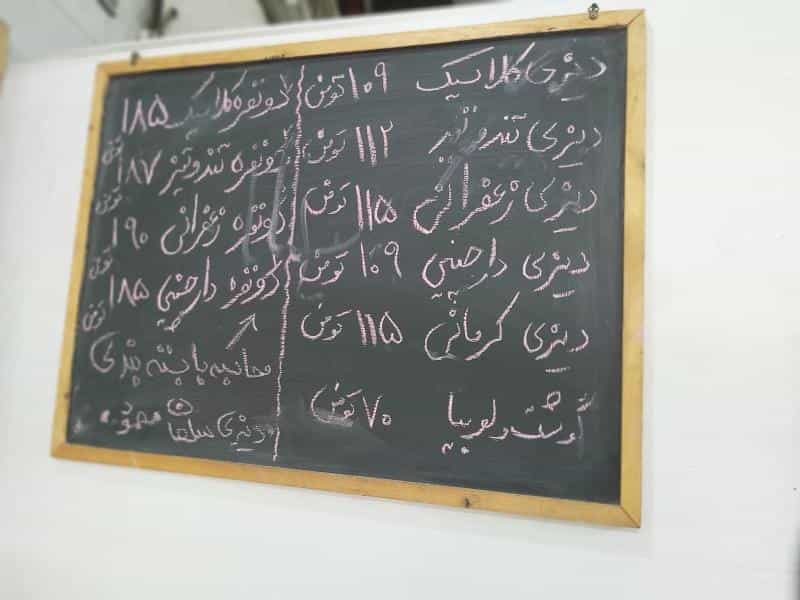 دیزی کلاسیک ۱۰۹ تومن
دیزی تند و تند ۱۱۲ تومن
دیزی زعفرانی ۱۱۵ تومن
دیزی دارچینی ۱۰۹ تومن
دیزی کرمانی ۱۱۵ تومن
گوشت و لوبیا ۷۰ تومن
دونفره کلاسیک ۱۸۵ تومن
دونفره تند و تیز ۱۸۷ تومن
دونفره زعفرانی ۱۹۰ تومن
دونفره دارچینی ۱۸۵ تومن
محاسبه با بسته بندی
دیزی